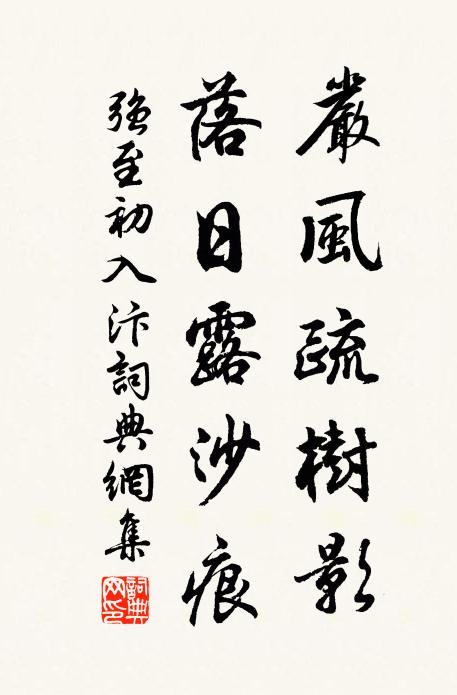 嚴風疏樹影
落日露沙痕
强至初入汴詞典網集
詞典网印